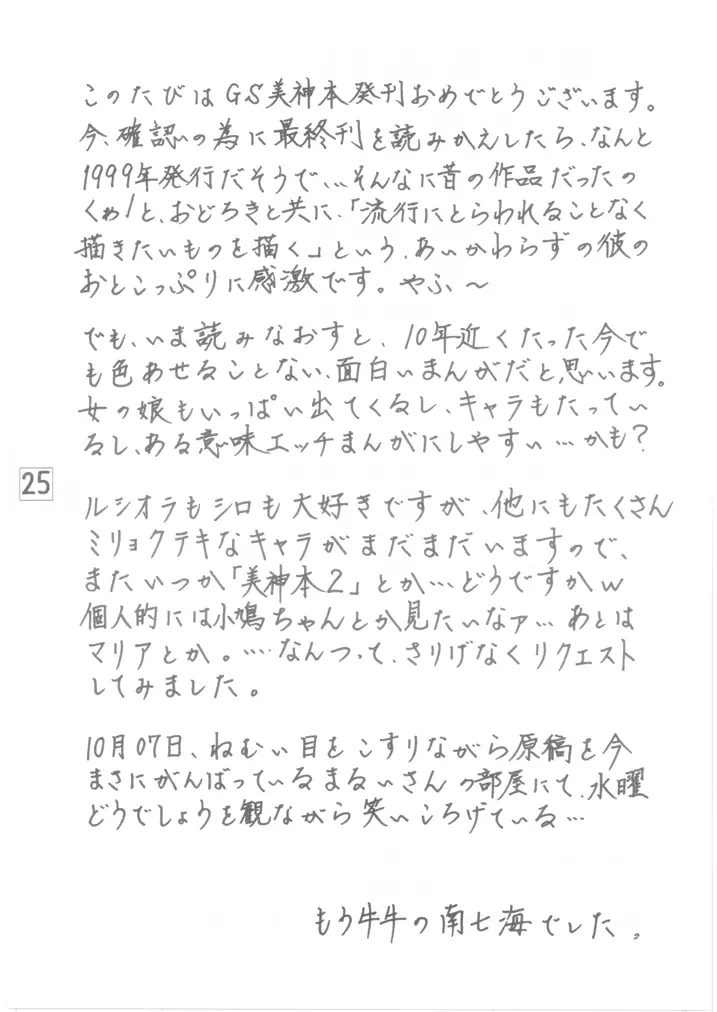 このたびはGS美神本発刊おめでとうございます。
今、確認の為に最終刊を読みかえしたら、なんと
1999年発行だそうで、、、そんなに昔の作品だったの
くゎ!と、おどろきと共に、「流行にとらわれることなく
描きたいものを描く」という、あいかわらずの彼の
おとこっぷりに感激です。やふ～
でも、いま読みなおすと、10年近くたった今で
も色あせることない、面白いまんがだと、思います。
女の娘もいっぱい出てくるし、キャラもたってい
るし、ある意味エッチまんがにしやすい…かも?
25
ルシオラもシロも大好きですが、他にもたくさん
ミリョクテキなキャラがまだまだいますので、
またいつか「美神本2」とか…どうですかw
個人的には小鳩ちゃんとか見たいなァ… あとは
マリアとか。….なんつって、さりげなくリクエスト
してみました。
10月07日、ねむい目をこすりながら原稿を今
まさにがんばっているまるぃさんの部屋にて、水曜
どうでしょうを観ながら笑いころげている…
もう牛牛の南七海でした。